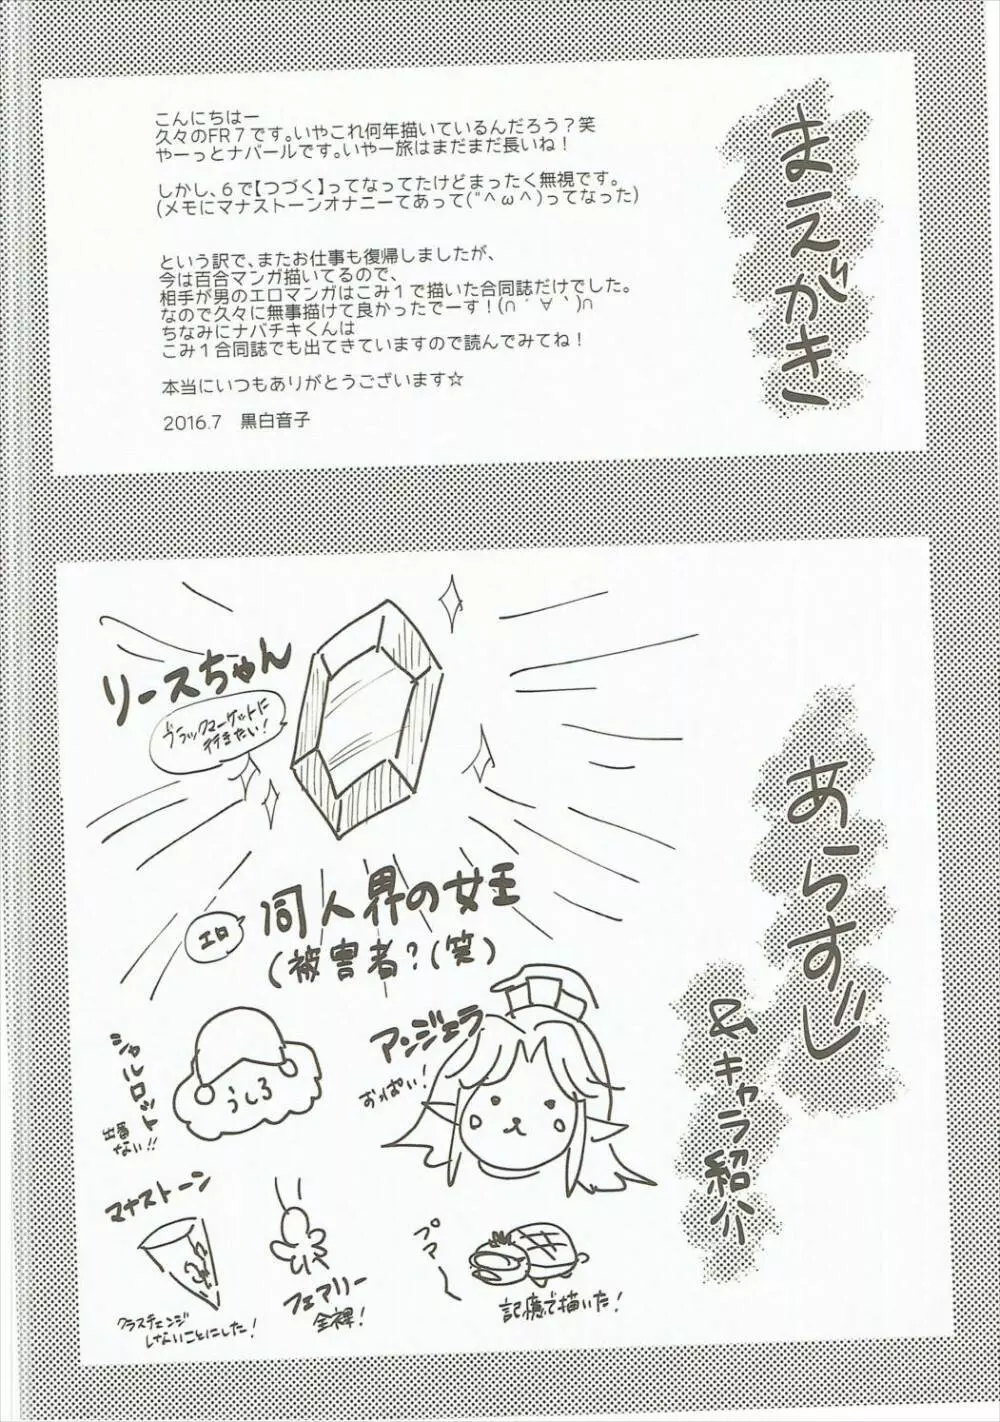 まえがき
こんにちはー
久々のFR7です。いやこれ何年描いているんだろう？笑
やーっとナバールです。いやー旅はまだまだ長いね！
しかし、6で【つづく】ってなってたけどまったく無視です。
(メモにマナストーンオナニーてあって(“^ω^)ってなった)
という訳で、またお仕事も復帰しましたが、
今は百合マンガ描いてるので、
相手が男のエロマンガはこみ1で描いた合同誌だけでした。
なので久々に無事描けて良かったでーす！(∩´∀｀)∩
ちなみにナバチキくんは
こみ1合同誌でも出てきていますので読んでみてね！
本当にいつもありがとうございます☆
2016.7　黒白音子
あらすじ
&キャラ紹介
リースちゃん
ブラックマーケットに
行きたい！
エロ
同人界の女王
(被害者?(笑)
アンジェラ
おっぱい！
シャルロット
出番
ない!!
うしろ
マナストーン
クラスチェンジ
しないことにした！
フェアリー
全裸！
ブマー
記憶で描いた！